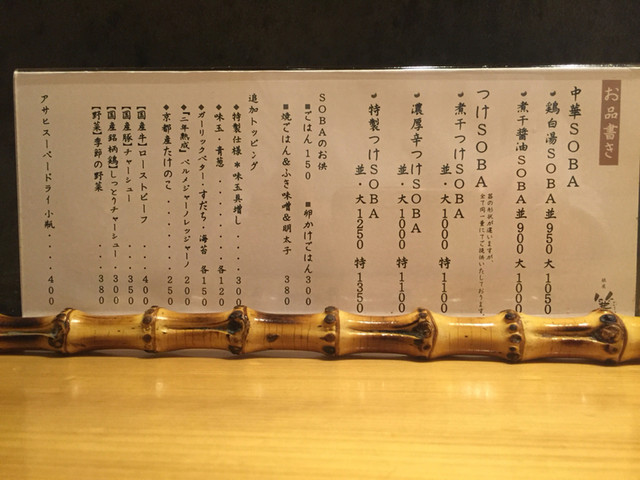 お品書き
中華SOBA
鶏白湯SOBA 並950 大1050
煮干醤油SOBA 並900 大1000
つけSOBA
器の形状が違いますが、
全て同一量にてご提供いたしております。
煮干つけSOBA
並・大1000 特1100
濃厚辛つけSOBA
並・大1000 特1100
特製つけSOBA
並・大1250 特1350
SOBAのお供
■ごはん150 ■卵かけごはん300
■焼ごはん&ふき味噌&明太子 380
追加トッピング
◆特製仕様*味玉具増し....300
◆味玉・青葱........各120
◆ガーリックバター・すだち・海苔 各150
◆「二年熟成」パルメジャーノレッジャーノ 200
◆京都産たけのこ.......250
【国産牛】ローストビーフ ....400
【国産豚】チャーシュー ....350
【国産銘柄鶏】しっとりチャーシュー.300
【野菜】季節の野菜 ....380
アサヒスーパードライ 小瓶....400